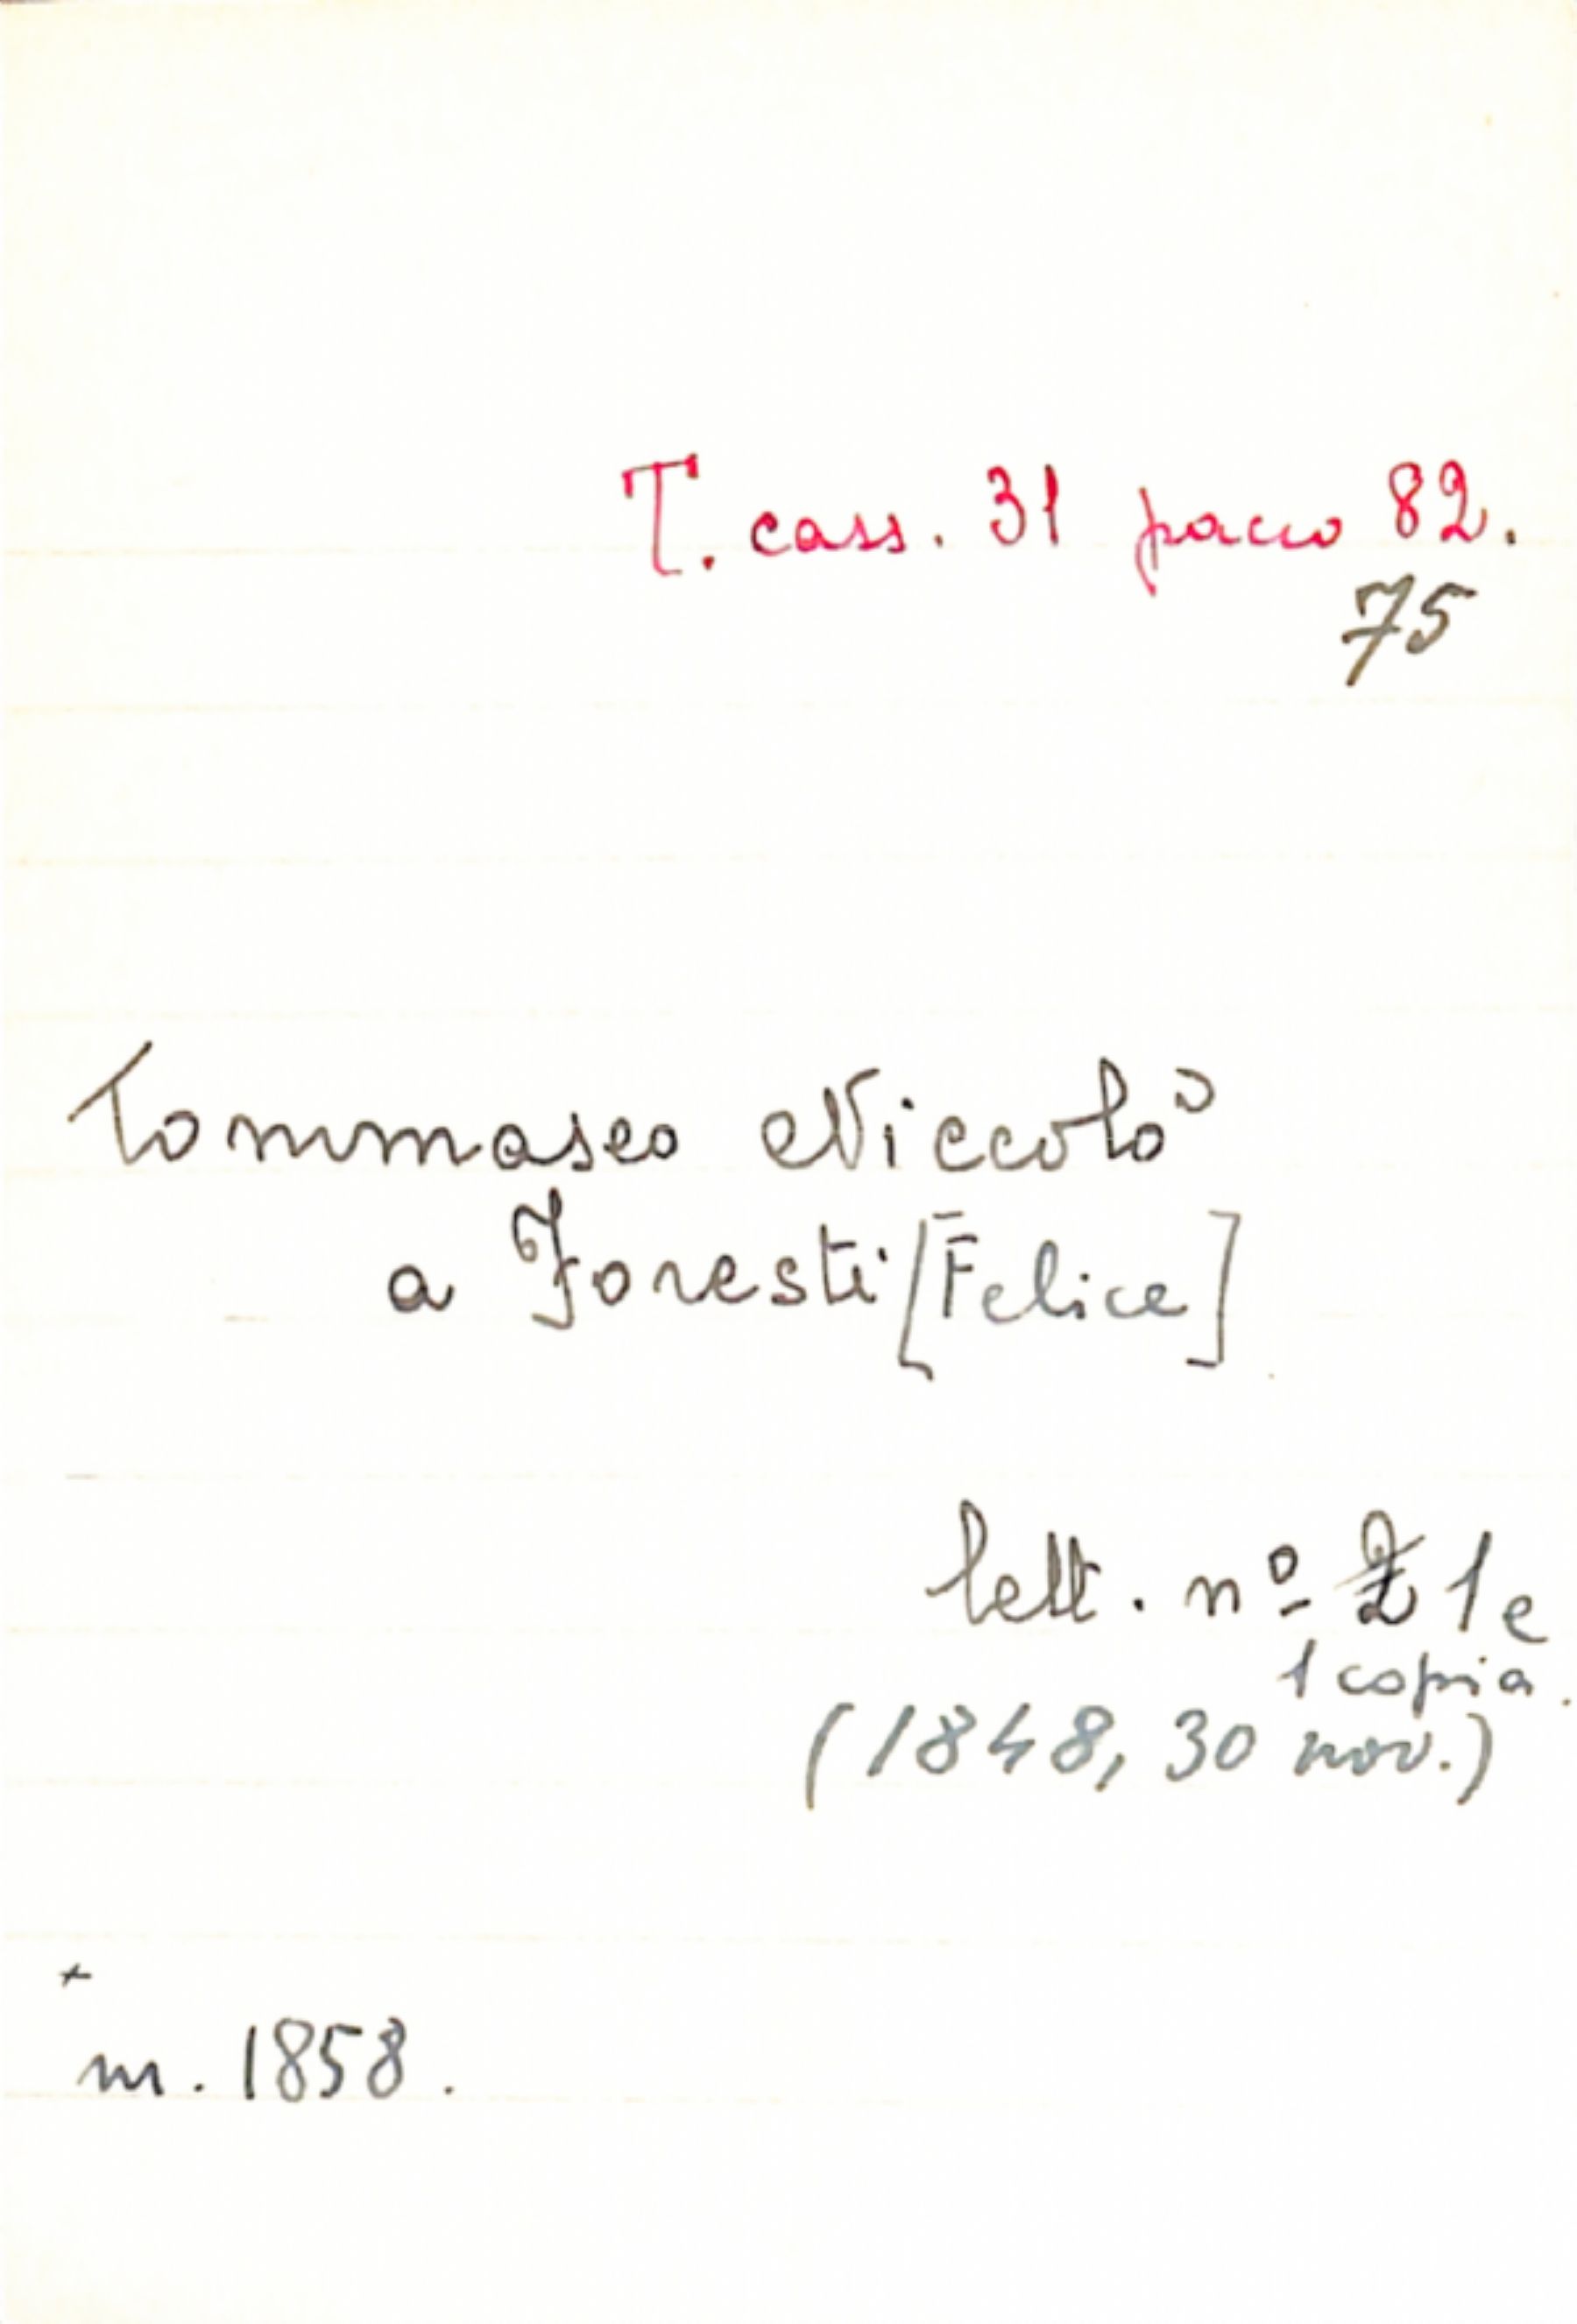 T. cass. 31 pacco 82.
75
Tommaseo Niccolò
a Foresti [Felice]
lett. nº 2 1 e
1 copia.
(1848, 30 nov.)
+
m. 1858.